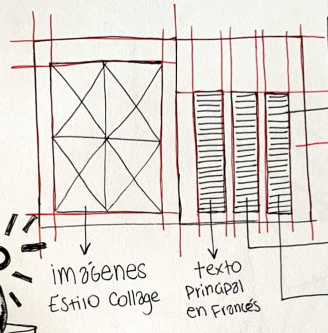 imágenes
Estilo Collage
texto
Principal
en Francés